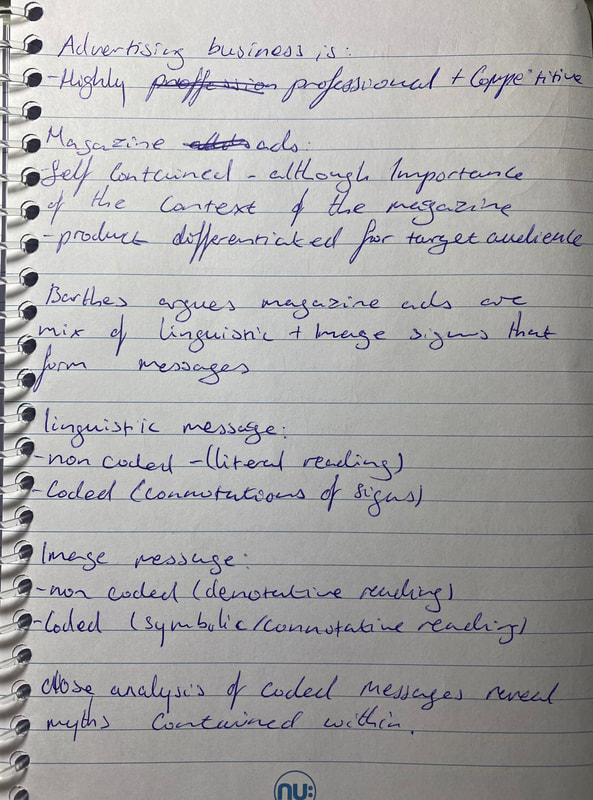 Advertising business is:
- Highly professional + Competitive
Magazine ads:
- Self Contained - although Importance
of the Context of the magazine
- product differentiated for target audience
Barthes argues magazine ads are
mix of linguistic + Image signs that
form messages
linguistic message:
- non coded - (literal reading)
- Coded (connotations of signs)
Image message:
- non coded (denotative reading)
- Coded (symbolic/connotative reading)
close analysis of coded messages reveal
myths contained within.
nu: